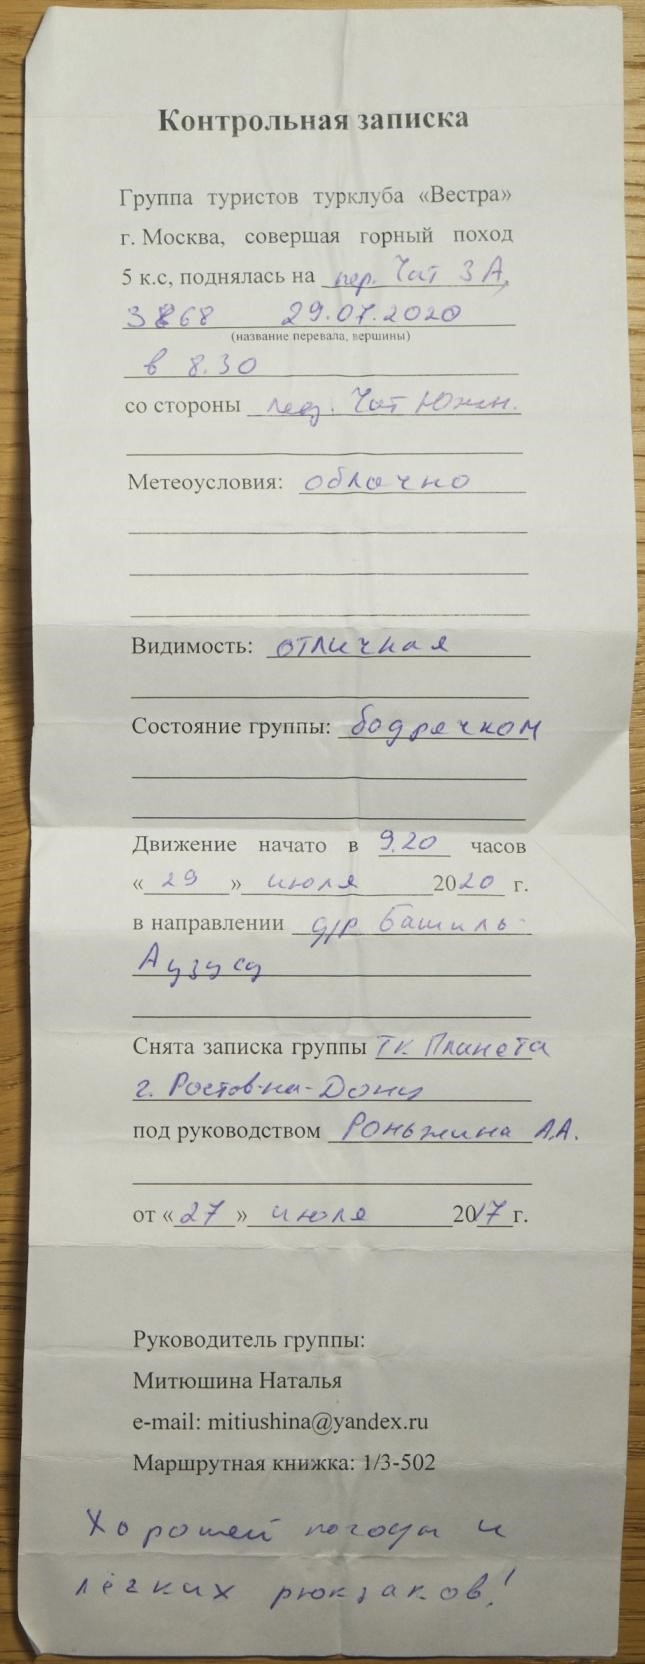 Контрольная записка
Группа туристов турклуба «Вестра»
г. Москва, совершая горный поход
5 к.с, поднялась на пер. Чат 3А,
3868 29.07.2020
(название перевала, вершины)
в 8.30
со стороны лед. Чат Южн.
Метеоусловия: облачно
Видимость: отличная
Состояние группы: бодрячком
Движение начато в 9.20 часов
«29» июля 2020 г.
в направлении д/р Башиль-
Аузусу
Снята записка группы ТК Планета
г. Ростов-на-Дону
под руководством Роньжина А.А.
от «27» июля 2017г.
Руководитель группы:
Митюшина Наталья
e-mail: mitiushina@yandex.ru
Маршрутная книжка: 1/3-502
Хорошей погоды и
лёгких рюкзаков!